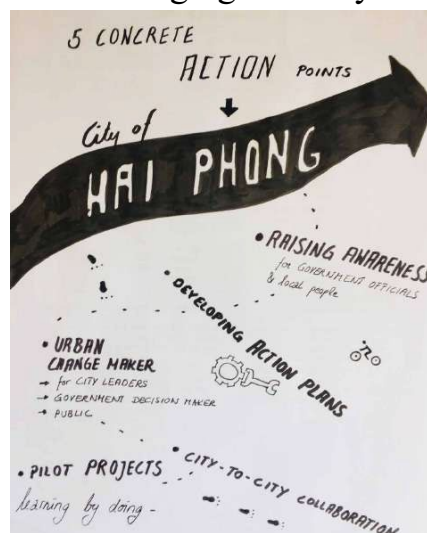 5 CONCRETE
ACTION POINTS
City of
HAI PHONG
• RAISING AWARENESS
for GOVERNMENT OFFICIALS
& local people
• DEVELOPING ACTION PLANS
• URBAN
CHANGE MAKER
→ for CITY LEADERS
→ GOVERNMENT DECISION MAKER
→ PUBLIC
• PILOT PROJECTS
learning by doing -
• CITY-TO-CITY COLLABORATION